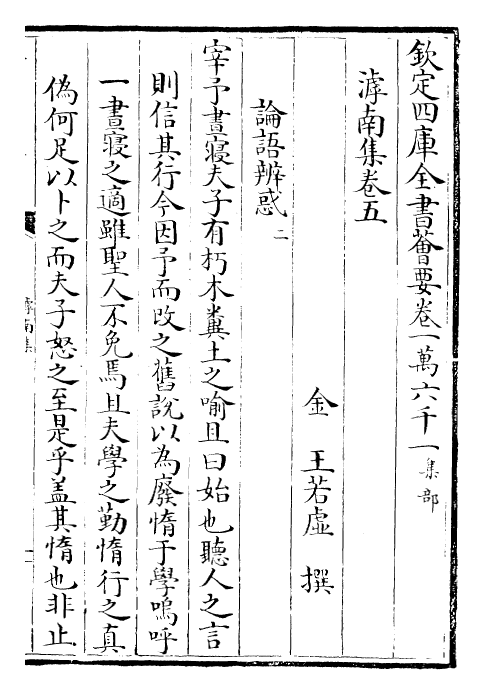 欽定四庫全書薈要卷一萬六千一集部
滹南集卷五
金王若虛撰
論語辨惑二
宰予晝寢夫子有朽木糞土之喻且曰始也聽人之言
則信其行今因予而改之舊說以為廢惰于學嗚呼
一晝寢之適雖聖人不免焉且夫學之勤惰行之真
偽何足以卜之而夫子怒之至是乎盖其惰也非止
滹南集